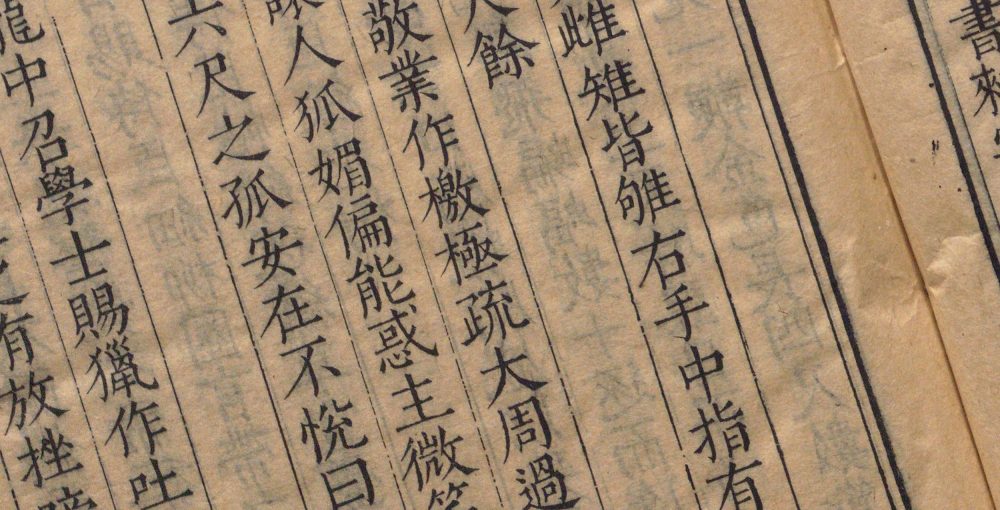 書
雌雉皆雊右手中指有
餘
敬業作檄極疏大周過
人狐媚偏能惑主微笑
土六尺之孤安在不悅曰
龍中召學士賜獵作吐
有放挫